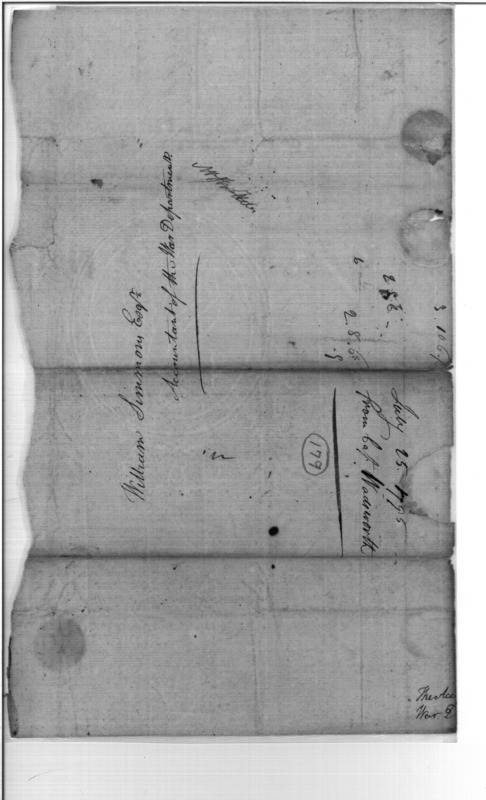 William Simmons Esqr.
Accountant of the War Department
July 25 1795
from Capt Wadsworth
179
3.1067
The Acc
War D